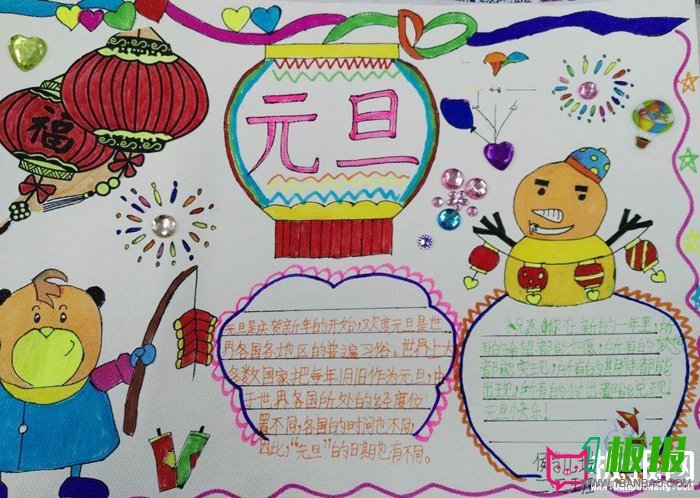 福
元旦
元旦是庆贺新年的开始,欢度元旦是世
界各国各地区的普遍习俗。世界上大
多数国家把每年1月1日作为元旦,由
于世界各国所处的经度位
置不同,各国的时间也不同,
因此,“元旦”的日期也有不同。
祝愿你在新的一年里,所
有的希望都能如愿,所有的梦想
都能实现,所有的期待都能
出现,所有的付出都能兑现!
元旦快乐!
板报